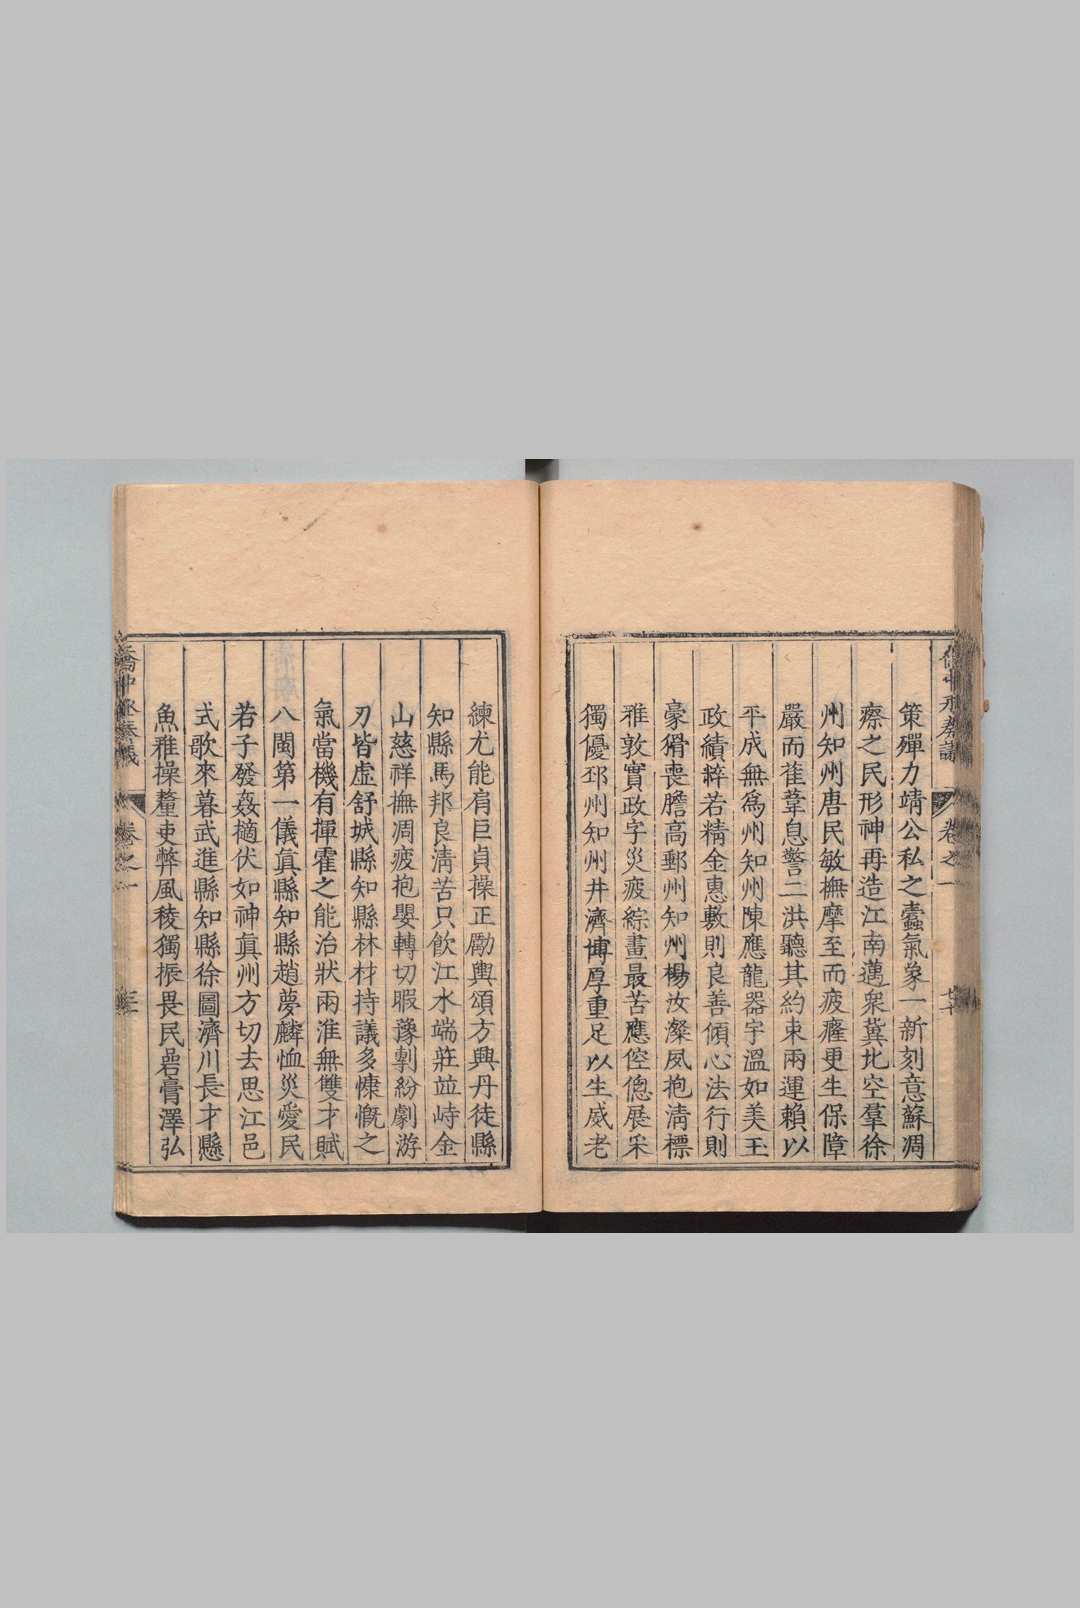 策殫力靖公私之蠹氣象一新刻意蘇凋
瘵之民形神再造江南邁衆冀北空羣徐
州知州唐民敏撫摩至而疲癃更生保障
嚴而萑葦息警二洪聽其約束兩運賴以
平成無爲州知州陳應龍器宇溫如美玉
政績粹若精金惠敷則良善傾心法行則
豪猾喪膽高郵州知州楊汝澯夙抱淸標
雅敦實政字災疲綜畫最苦應倥傯展采
獨優邳州知州井濟博厚重足以生威老
練尤能肩巨貞操正勵輿頌方興丹徒縣
知縣馬邦良淸苦只飮江水端莊竝峙金
山慈祥撫凋疲抱嬰轉切暇豫剸紛劇游
刃皆虛舒城縣知縣林材持議多慷慨之
氣當機有揮霍之能治狀兩淮無雙才賦
八閩第一儀眞縣知縣趙夢麟恤災愛民
若子發姦擿伏如神眞州方切去思江邑
式歌來暮武進縣知縣徐圖濟川長才懸
魚雅操釐吏弊風稜獨振畏民碞膏澤弘
卷之一